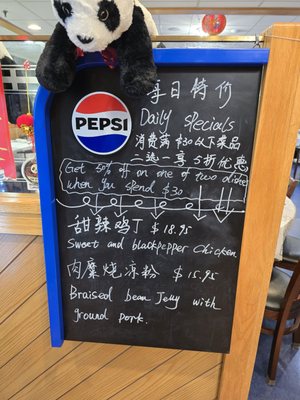 每日特价
PEPSI
Daily specials
消费满 $30以下菜品
二选一享 5折优惠
Get 50% of on one of two dishes
when you spend $30
甜辣鸡丁 $18.95
Sweet and blackpepper Chicken
肉糜烧凉粉 $15.95
Braised bean Jelly with
ground pork.